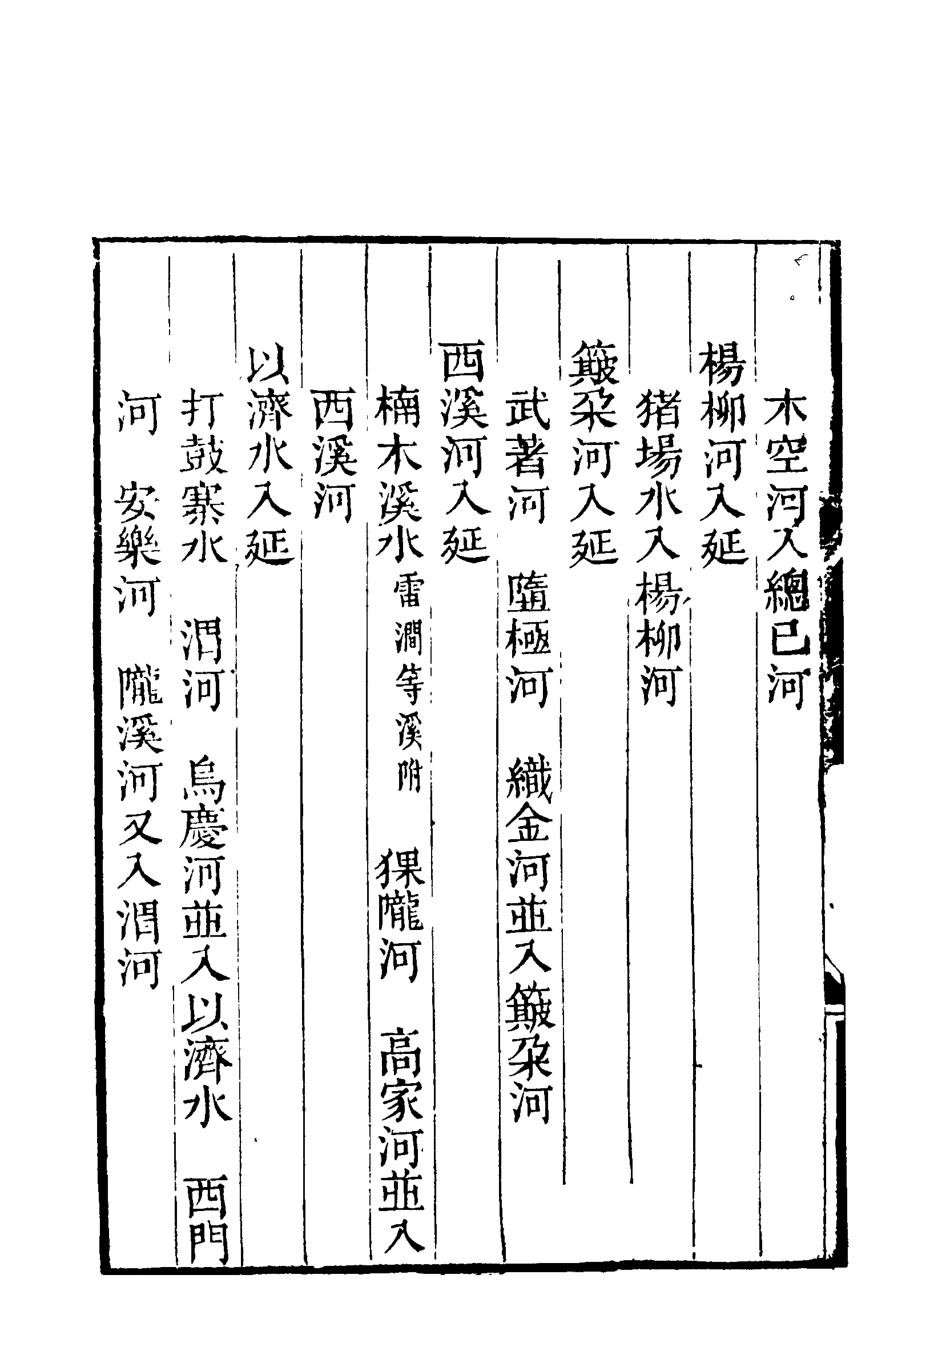 木空河入總已河
楊柳河入延
猪場水入楊柳河
簸朶河入延
武著河　墮極河　織金河並入簸朶河
西溪河入延
楠木溪水雷澗等溪附　猓隴河　高家河並入
西溪河
以濟水入延
打鼓寨水　渭河　烏慶河並入以濟水　西門
河　安樂河　隴溪河又入渭河